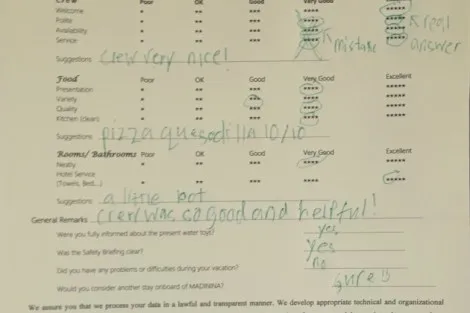 Crew Poor OK Good Very Good
Welcome * ** *** **** *****
Polite * ** *** **** ***** ↖ real
Availability * ** *** **** ↖ mistake ***** answer
Service * ** *** **** *****
Suggestions: crew very nice!
Food Poor OK Good Very Good Excellent
Presentation * ** *** **** *****
Variety * ** *** **** *****
Quality * ** *** **** *****
Kitchen (clean) * ** *** **** *****
Suggestions: pizza quesadilla 10/10
Rooms/ Bathrooms Poor OK Good Very Good Excellent
Neatly * ** *** **** *****
Hotel Service
(Towels, Bed...) * ** *** **** *****
Suggestions: a little hot
General Remarks crew was so good and helpful!
Were you fully informed about the present water toys? yes
Was the Safety Briefing clear? yes
Did you have any problems or difficulties during your vacation? no
Would you consider another stay onboard of MADININA? sure
We assure you that we process your data in a lawful and transparent manner. We develop appropriate technical and organizational